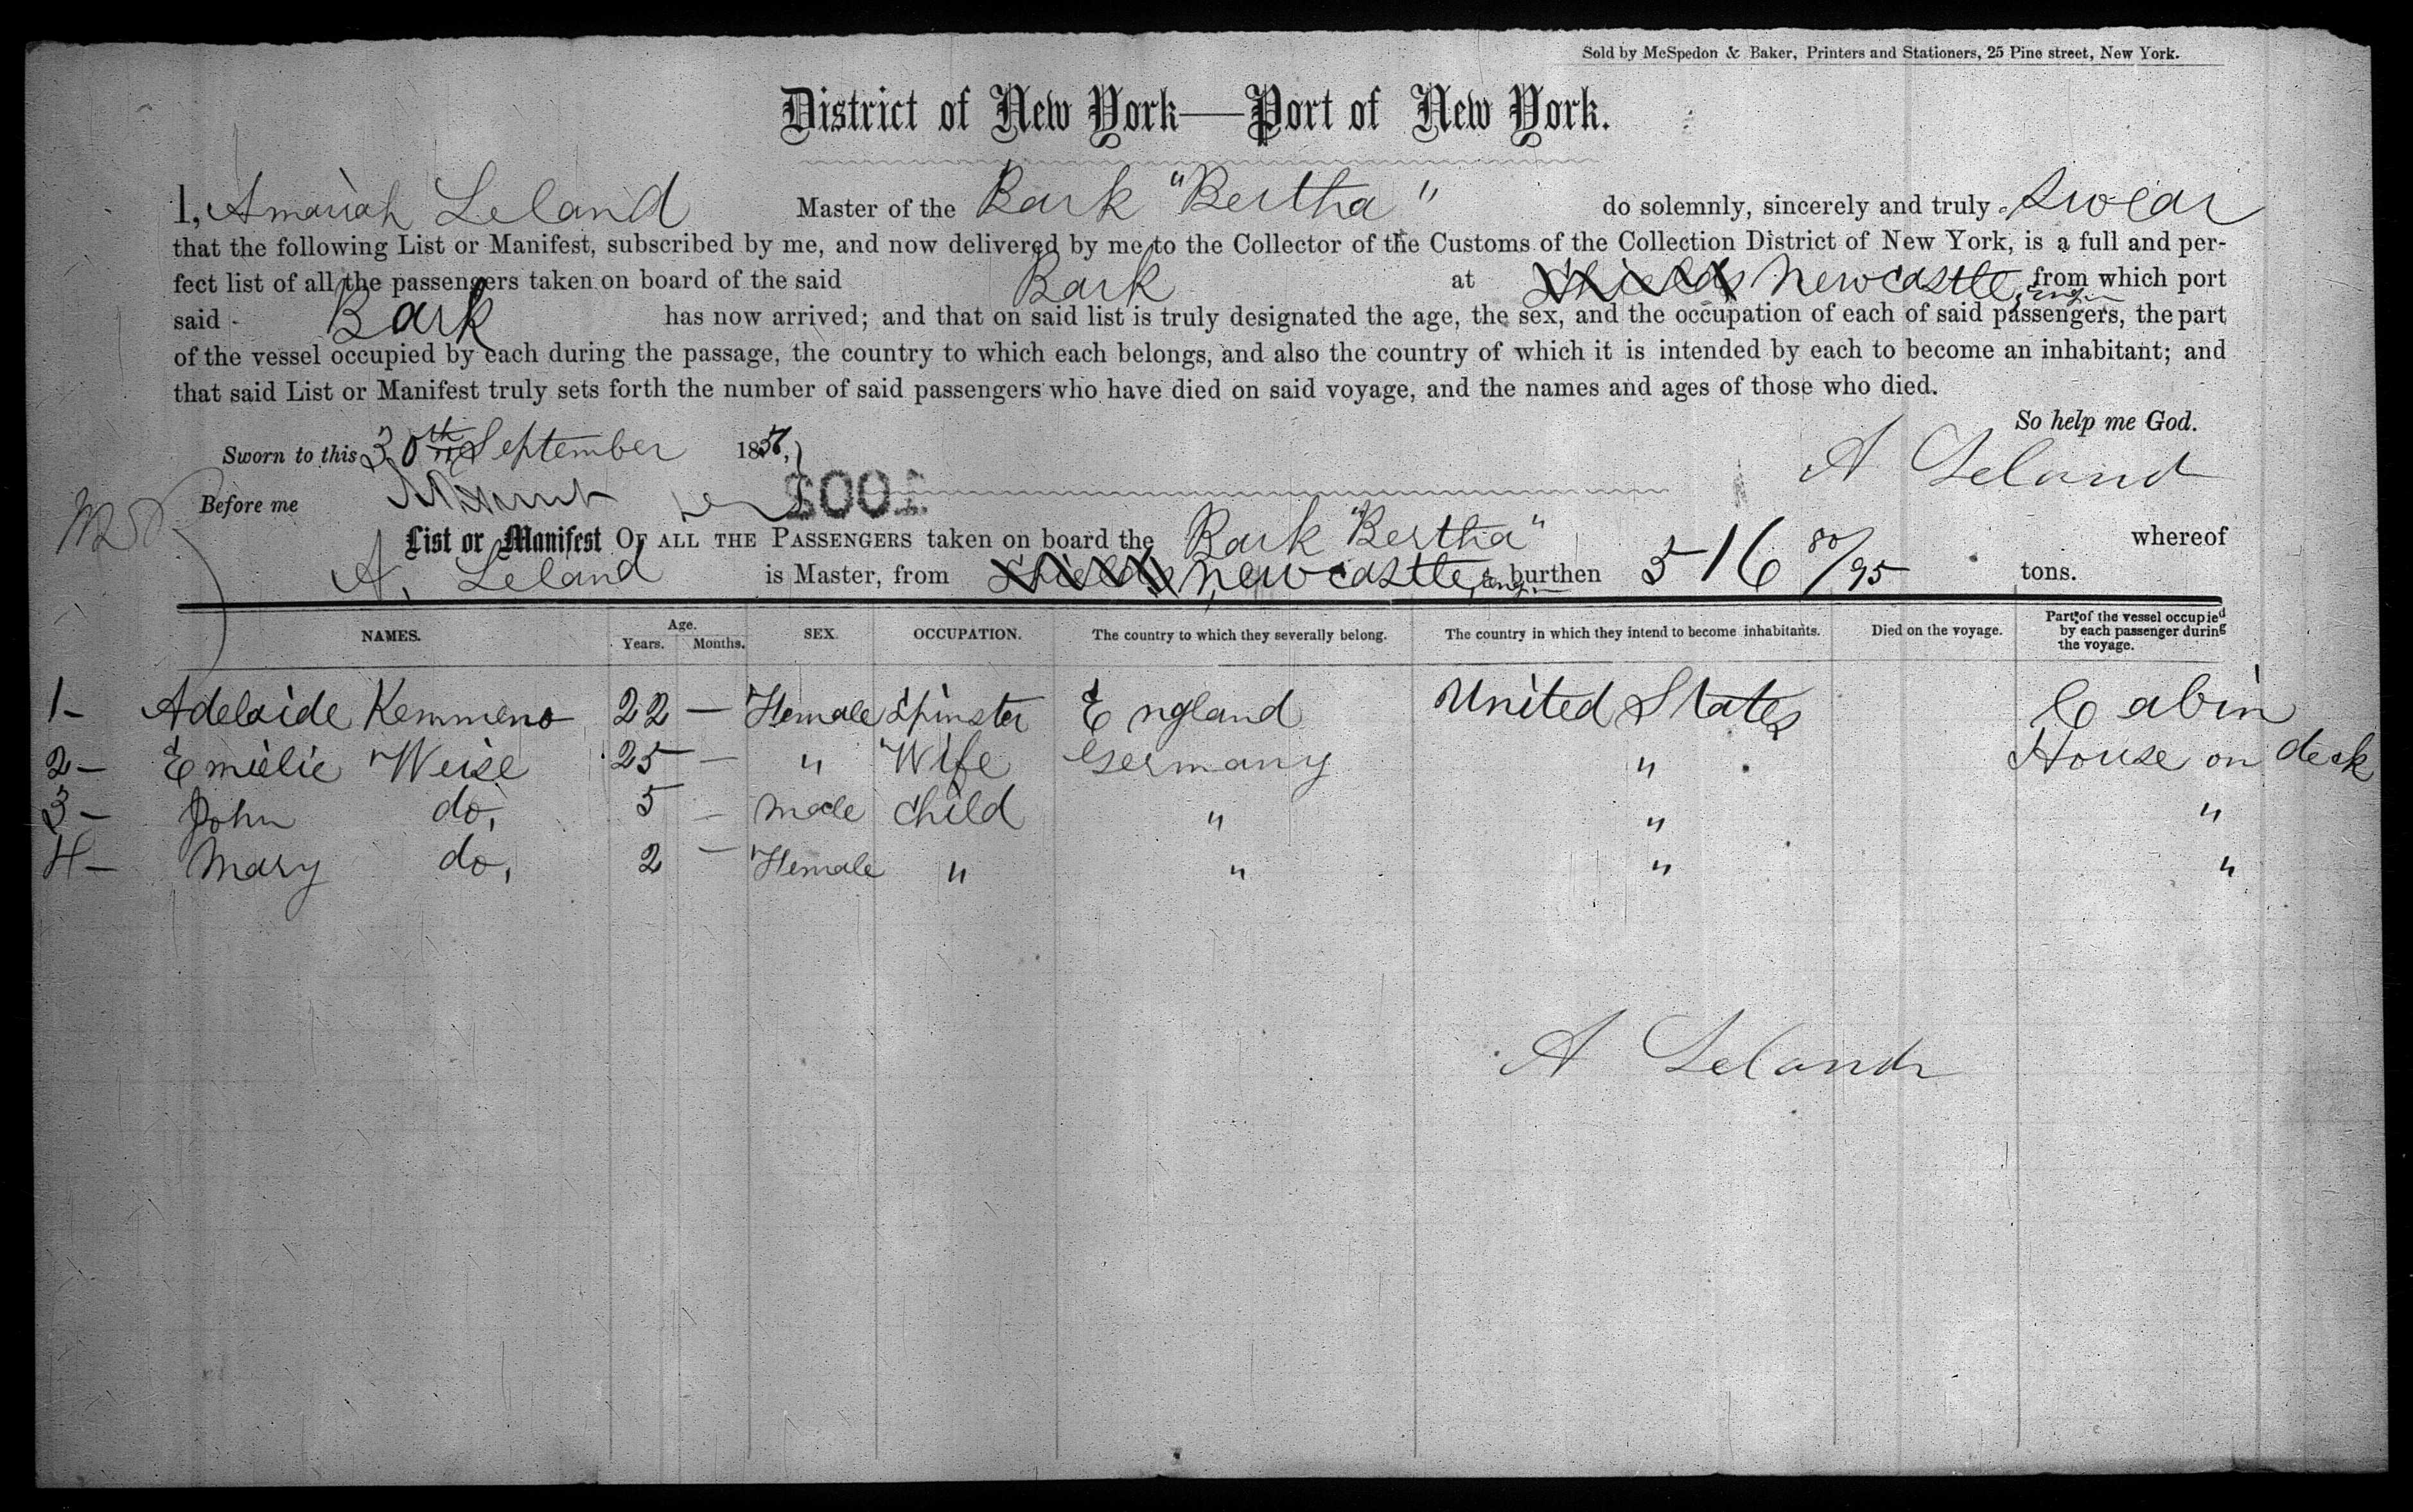 Sold by McSpedon & Baker, Printers and Stationers, 25 Pine street, New York.
District of New York—Port of New York.
I, Amariah Leland Master of the Bark "Bertha" do solemnly, sincerely and truly swear
that the following List or Manifest, subscribed by me, and now delivered by me to the Collector of the Customs of the Collection District of New York, is a full and per-
fect list of all the passengers taken on board of the said Bark at Shields Newcastle, Eng. from which port
said Bark has now arrived; and that on said list is truly designated the age, the sex, and the occupation of each of said passengers, the part
of the vessel occupied by each during the passage, the country to which each belongs, and also the country of which it is intended by each to become an inhabitant; and
that said List or Manifest truly sets forth the number of said passengers who have died on said voyage, and the names and ages of those who died.
So help me God.
Sworn to this 30th September 185
A Leland
Before me
1002
List or Manifest OF ALL THE PASSENGERS taken on board the Bark "Bertha" whereof
A. Leland is Master, from Shields Newcastle, Eng. burthen 516 80/95 tons.
NAMES. Age. Years. Months. SEX. OCCUPATION. The country to which they severally belong. The country in which they intend to become inhabitants. Died on the voyage. Part of the vessel occupied by each passenger during the voyage.
1- Adelaide Kemmeno 22 — Female Spinster England United States Cabin
2- Emielie Weise 25 — " Wife Germany " House on deck
3- John do, 5 — Male Child " " "
4- Mary do, 2 — Female " " " "
A Leland